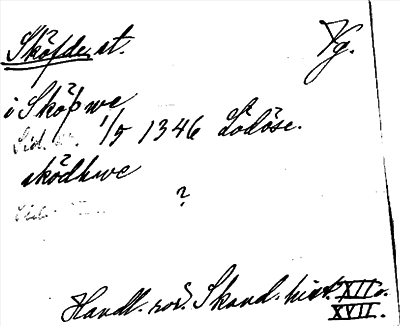 Sköfde, st. Vg.
i Sköþwe
1/5 1346 Lödöse.
sködhwe
?
Handl. rör. Skand. hist. XII o.
XVII.